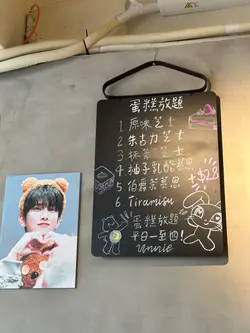 蛋糕放題
1 原味芝士
2 朱古力芝士
3 抹茶芝士
4 柚子乳酪慕思
5 伯爵茶慕思
6 Tiramusu
+$28
蛋糕放題
平日一至四!
unnie